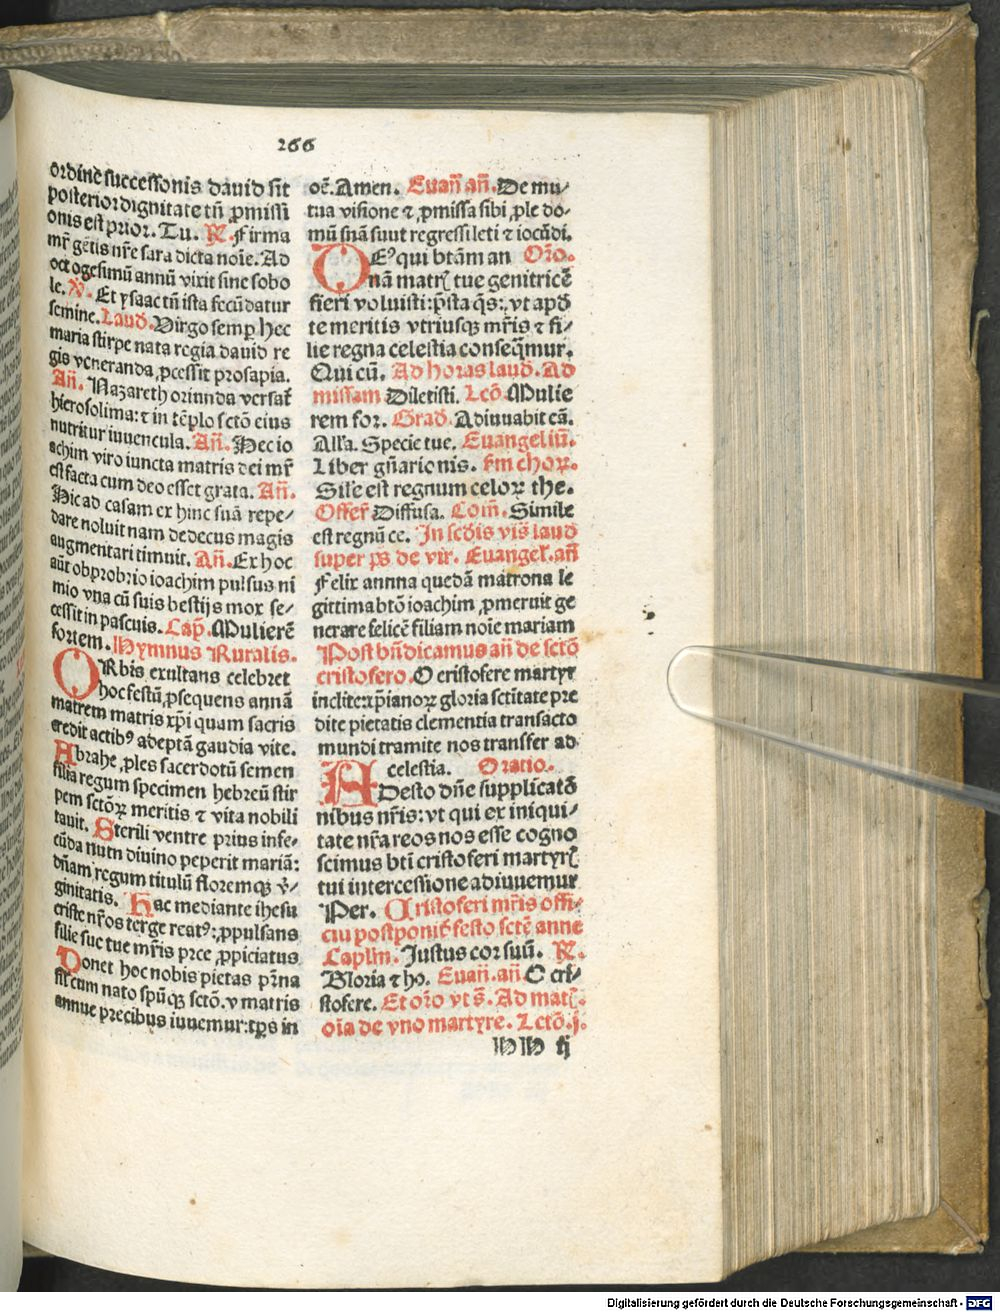 266
ordinē successonis dauid sit
posterior dignitate tn̄ ꝓmissi
onis est prior. Tu. ℟. Firma
mr̄ gētis nr̄e sara dicta noīe. Ad
octogesimū annū vixit sine sobo
le. ℣. Et ysaac tn̄ ista fecūdatur
semine. Laud. Virgo semp hec
maria stirpe nata regia dauid re
gis veneranda ꝓcessit prosapia.
Añ. Nazareth oriunda versat̄
hierosolima: ⁊ in tēplo sctō eius
nutritur iuuencula. Añ. Hec io
achim viro iuncta matris dei mr̄
est facta cum deo esset grata. Añ.
Hic ad casam ex hinc suā repe⸗
dare noluit nam dedecus magis
augmentari timuit. Añ. Ex hoc
aūt obprobrio ioachim pulsus ni
mio vna cū suis bestijs mox se⸗
cessit in pascuis. Cap̄. Mulierē
fortem. Hymnus Ruralis.
ORbis exultans celebret
hoc festū ꝓsequens annā
matrem matris xp̄i quam sacris
credit actibꝰ adeptā gaudia vite.
Abrahe ꝓles sacerdotū semen
filia regum specimen hebreū stir
pem sctōꝝ meritis ⁊ vita nobili
tauit. Sterili ventre prius infe⸗
cūda nutu diuino peperit mariā:
dn̄am regum titulū floremqꝫ v̄⸗
ginitatis. Hac mediante ihesu
criste nr̄os terge reatꝰ: ꝓpulsans
filie sue tue mr̄is prce ꝓpiciatus
Donet hoc nobis pietas pr̄na
sit cum nato spūqꝫ sctō. v matris
annue precibus iuuemur: tp̄s in
oē. Amen. Euañ añ. De mu⸗
tua visione ⁊ ꝓmissa sibi ꝓle do⸗
mū sn̄ā sūut regressi leti ⁊ iocūdi.
DEꝰ qui btām an Orō.
nā matrꝭ tue genitricē
fieri voluisti: p̄sta qs̄: vt apd̄
te meritis vtriusqꝫ mr̄is ⁊ fi⸗
lie regna celestia conseq̄mur.
Qui cū. Ad horas laud. Ad
missam Dilexisti. Lcō. Mulie
rem for. Grad. Adiuuabit eā.
Alla. Specie tue. Euangeliū.
Liber gn̄arionis. fm choꝝ.
Sile est regnum celoꝝ the.
Offer̄ Diffusa. Com̄. Simile
est regnū ce. In scdis vis̄ laud
super ps̄ de vir. Euangel. añ
Felix annna quedā matrona le
gittima btō ioachim ꝓmeruit ge
nerare felicē filiam noīe mariam
Post bn̄dicamus añ de sctō
cristofero. O cristofere martyr
inclite: xp̄ianoꝝ gloria sctitate pre
dite pietatis clementia transacto
mundi tramite nos transfer ad
celestia. Oratio.
ADesto dn̄e supplicatō
nibus nr̄is: vt qui ex iniqui⸗
tate nr̄a reos nos esse cogno
scimus btī cristoferi martyrꝭ
tui intercessione adiuuemur
Per. Cristoferi mr̄is offi⸗
ciu postponit̄ festo sctē anne
Caplm. Justus cor suū. ℟.
Gloria ⁊ ho. Euañ. añ O cri⸗
stofere. Et orō vt s̄. Ad matꝭ.
oīa de vno martyre. Lctō. j.
HH ij
Digitalisierung gefördert durch die Deutsche Forschungsgemeinschaft - DFG